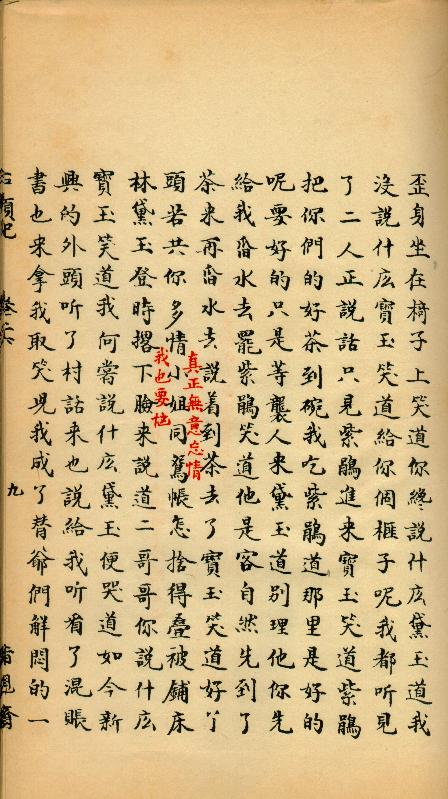 歪身坐在椅子上笑道你纔説什庅黛玉道我
没説什庅寶玉笑道給你個榧子呢我都听見
了二人正説話只見紫鵑進來寶玉笑道紫鵑
把你們的好茶到碗我吃紫鵑道那里是好的
呢要好的只是等襲人来黛玉道別理他你先
給我舀水去罷紫鵑笑道他是客自然先到了
茶来再舀水去説着到茶去了寶玉笑道好丫
真正無意忘情
頭若共你多情小姐同鴛帳怎捨得疊被鋪床
我也要恼
林黛玉登時撂下臉来説道二哥哥你説什庅
寶玉笑道我何嘗説什庅黛玉便哭道如今新
興的外頭听了村話来也説給我听看了混賬
書也来拿我取笑児我成了替爺們解悶的一